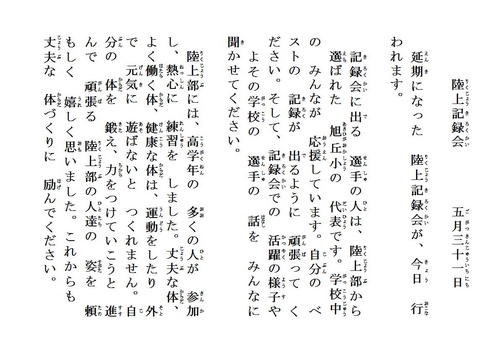 陸上記録会　五月三十一日
延期になった 陸上記録会が、今日 行
われます。
記録会に出る 選手の人は、陸上部から
選ばれた 旭丘小の 代表です。学校中
の みんなが 応援しています。自分の ベ
ストの 記録が 出るように 頑張ってく
ださい。そして、記録会での 活躍の様子や
よその学校の 選手の 話を みんなに
聞かせてください。
陸上部には、高学年の 多くの人が 参加
し、熱心に 練習を しました。丈夫な体、
よく働く体、健康な体は、運動をしたり 外
で 元気に 遊ばないと つくれません。自
分の 体を 鍛え、力をつけていこうと 進
んで 頑張る 陸上部の人達の 姿を 頼
もしく 嬉しく思いました。これからも
丈夫な 体づくりに 励んでください。